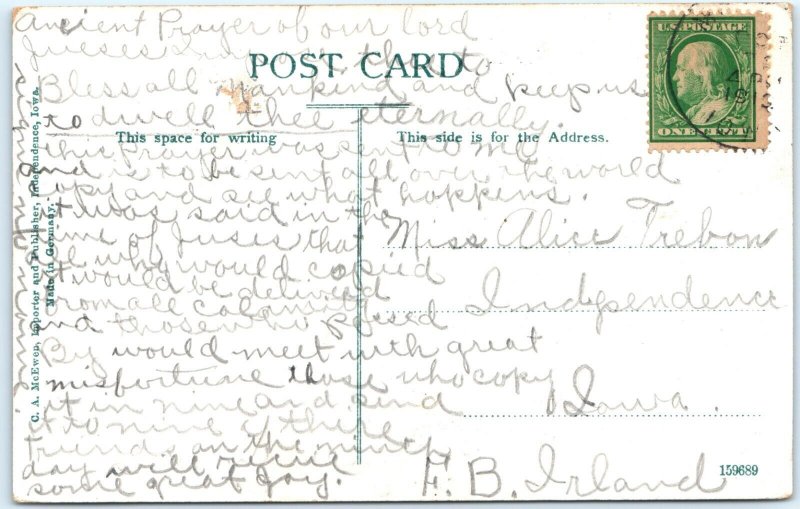 Ancient Prayer of our lord
Jueses
POST CARD
Bless all mankind and keep us
to dwell thee eternally.
This space for writing
This side is for the Address.
this Prayer was sent to me
and is to be sent all over the world
copy and see what happens.
it was said in the
name of Jueses that
all who would copied
it would be delivered
from all calamity
and those who passed
By would meet with great
misfortune those who copy
it in nine and send
it to nine of there
friends on the nineth
day will recive
some great Joy.
Miss Alice Trebon
Indpendence
Iowa.
F. B. Irland
159689
C. A. McEwen, Importer and Publisher, Independence, Iowa.
Made in Germany.
U.S. POSTAGE
ONE CENT